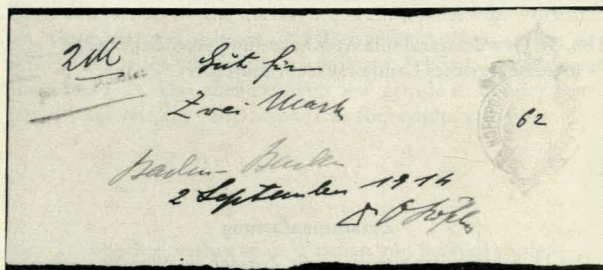 2M Gut für
Zwei Mark
62
Baden-Baden
2 September 1914